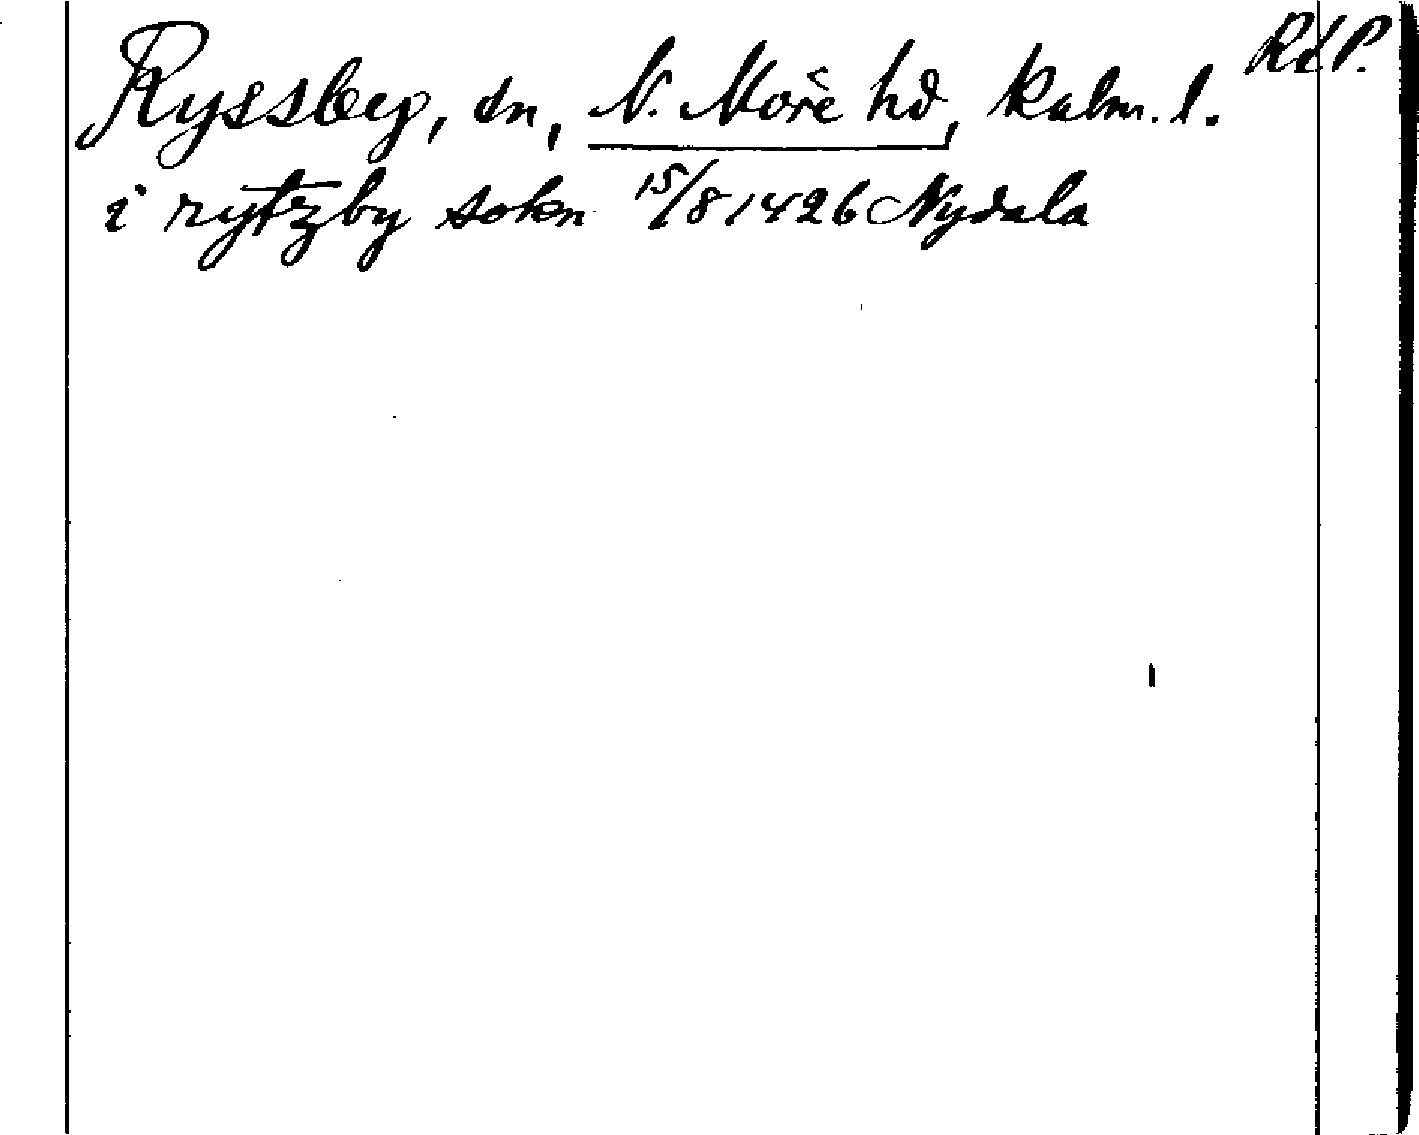 Ryssby, sn, N. Möre hd, Kalm. l.
i rytzby sokn 15/8 1426 Nydala